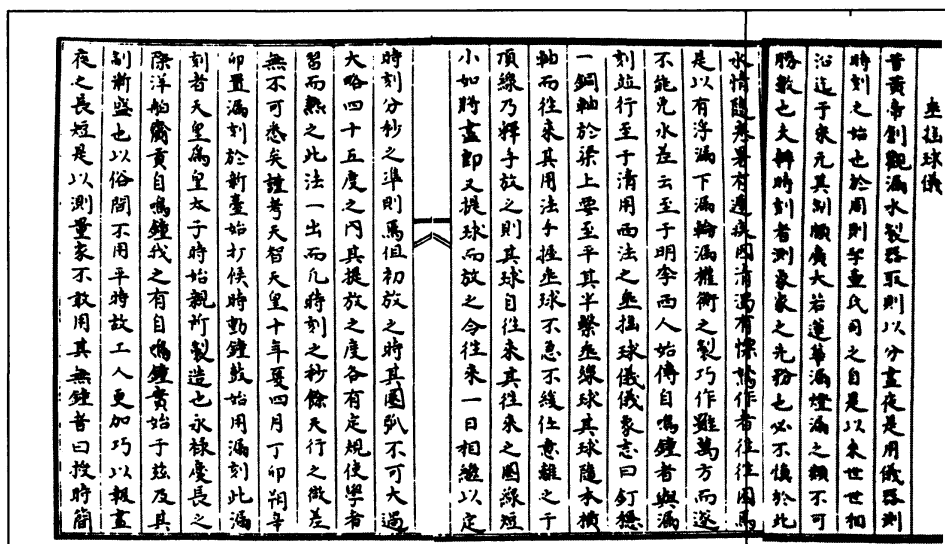 垂揺球儀
昔黄帝創觀漏水製器取則以分晝夜是用儀器測
時刻之始也於周則挈壷氏司之自是以来世世相
沿迄于宋元其制頗廣大若蓮華漏燈漏之類不可
勝数也夫辨時刻者測象家之先務也必不慎於此
水情隨寒暑有遲疾因清濁有作者往往因焉
是以有浮漏下漏輪漏權衡之製巧作雖萬方而遂
不能免水差云至于明季西人始傳自鳴鐘者與漏
刻竝行至于清用西法之垂揺球儀儀象志曰釘穩
一鋼軸於梁上要至平其半繋垂線球其球隨本横
軸而往来其用法手提垂球不急不緩任意離之于
頂線乃釋手放之則其球自往来其往来之圈線短
小如時盡即又提球而放之令往来一日相繼以定
時刻分秒之準則焉但初放之時其圈弧不可大過
大略四十五度之内其提放之度各有定規使學者
習而熟之此法一出而凡時刻之秒餘天行之微差
無不可悉矣謹考天智天皇十年夏四月丁卯朔辛
卯置漏刻於新臺始打候時動鐘鼓始用漏刻此漏
刻者天皇為皇太子時始親所製造也永禄慶長之
際洋舶齎貢自鳴鐘我之有自鳴鐘實始于玆及其
制漸盛也以俗間不用平時故工人更加巧以報晝
夜之長短是以測量家不敢用其無鐘者曰授時簡